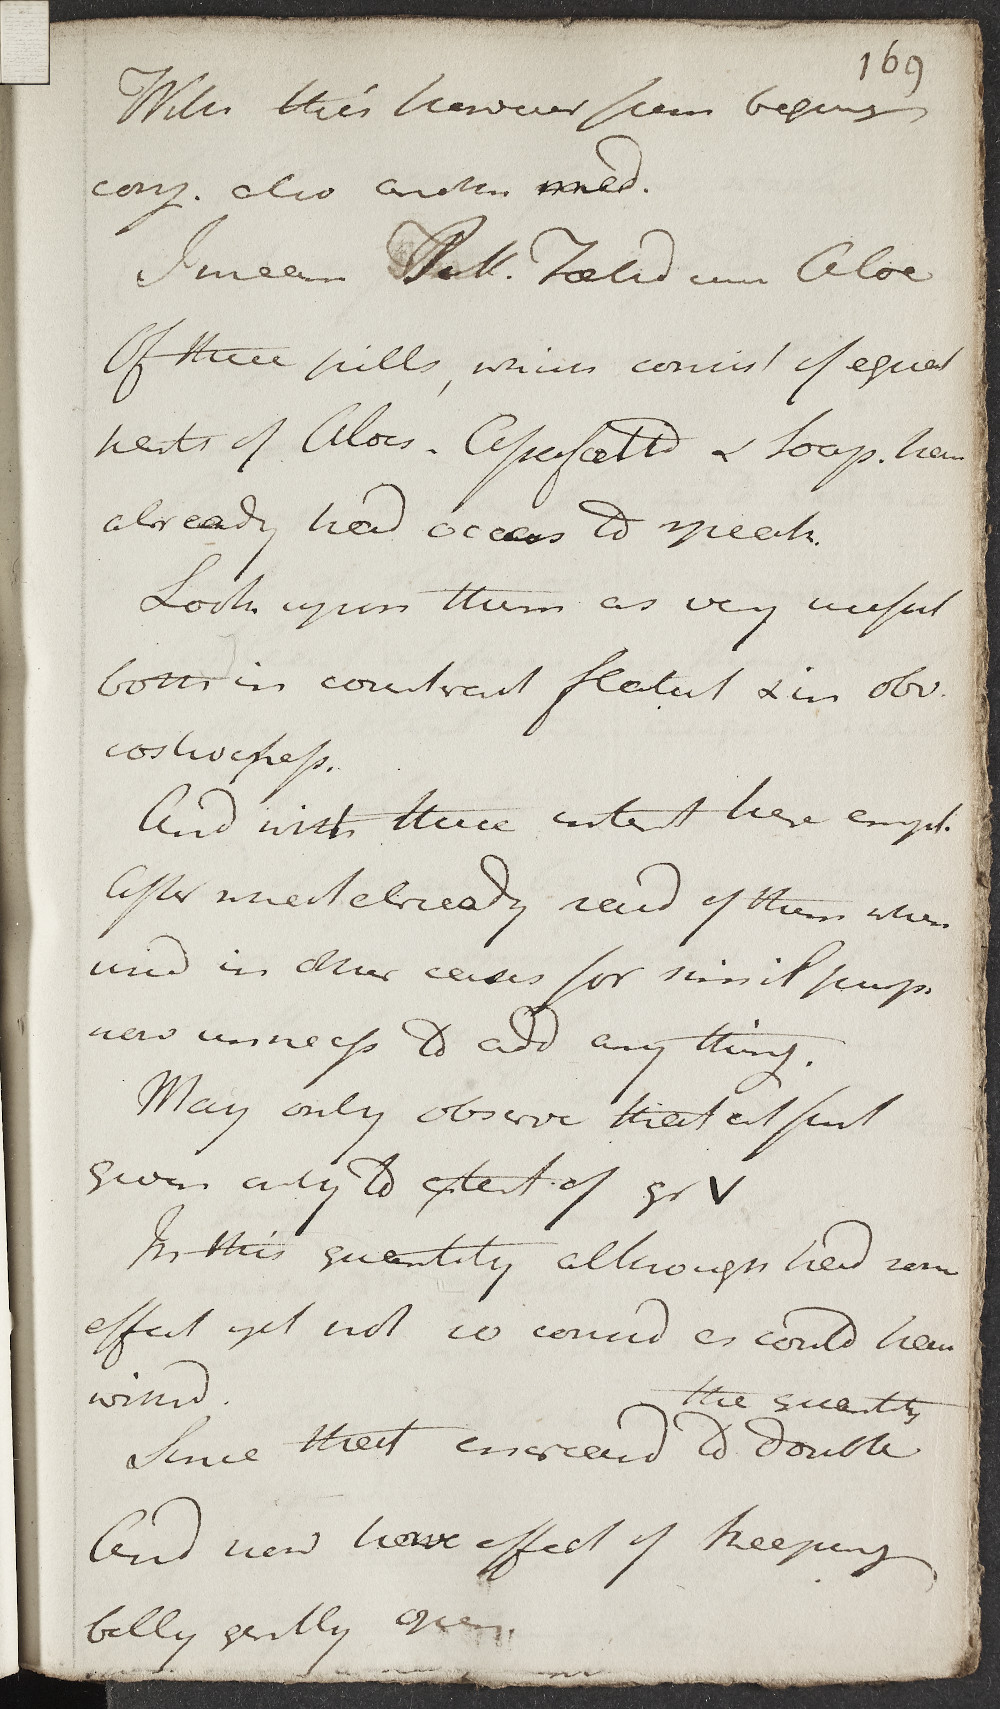 169
With this however from beginng
conj. also another med.
I mean Pill. Foetid cum Aloe
Of these pills, which consist of equal
parts of Aloes. Assafoetid & Soap. have
already had occas to speak.
Look upon them as very useful
both in counteract flatul & in obv.
costiveness.
And with these intent here empl.
After what already said of them when
used in other cases for simil purp.
now unnecess to add any thing.
May only observe that at first
given only to extent of gr V
In this quantity although had some
effect yet not so consid as could have
wishd.
the quantity
Since that increasd to double
And now have effect of keeping
belly gently open.